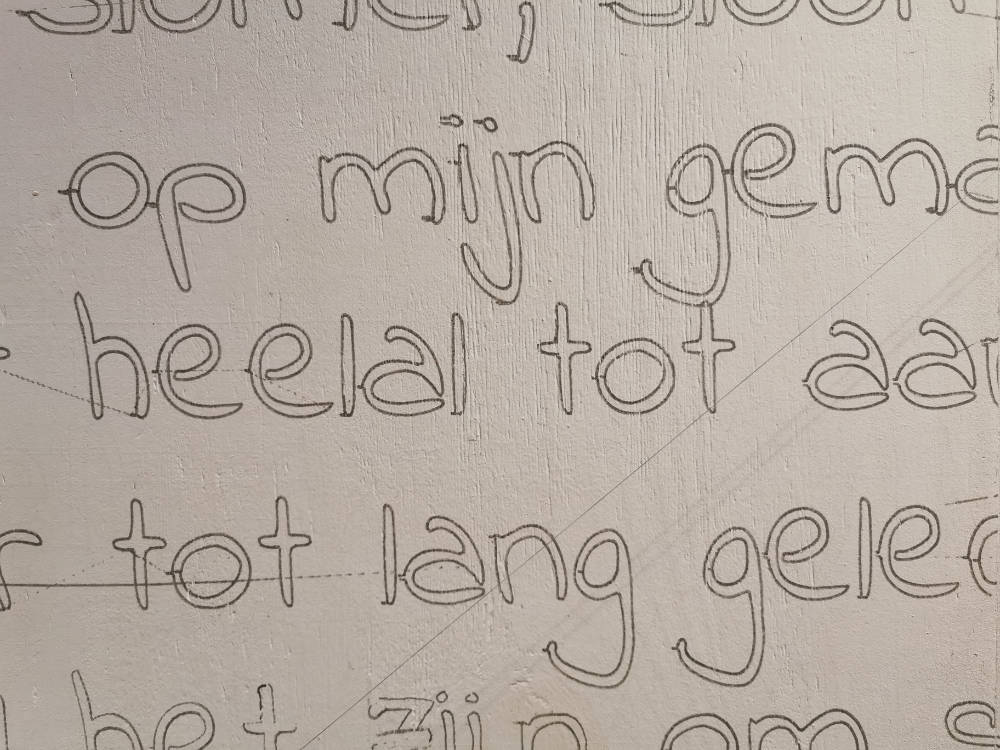 op mijn gema
heelal tot aa
r tot lang gele
het zijn om s